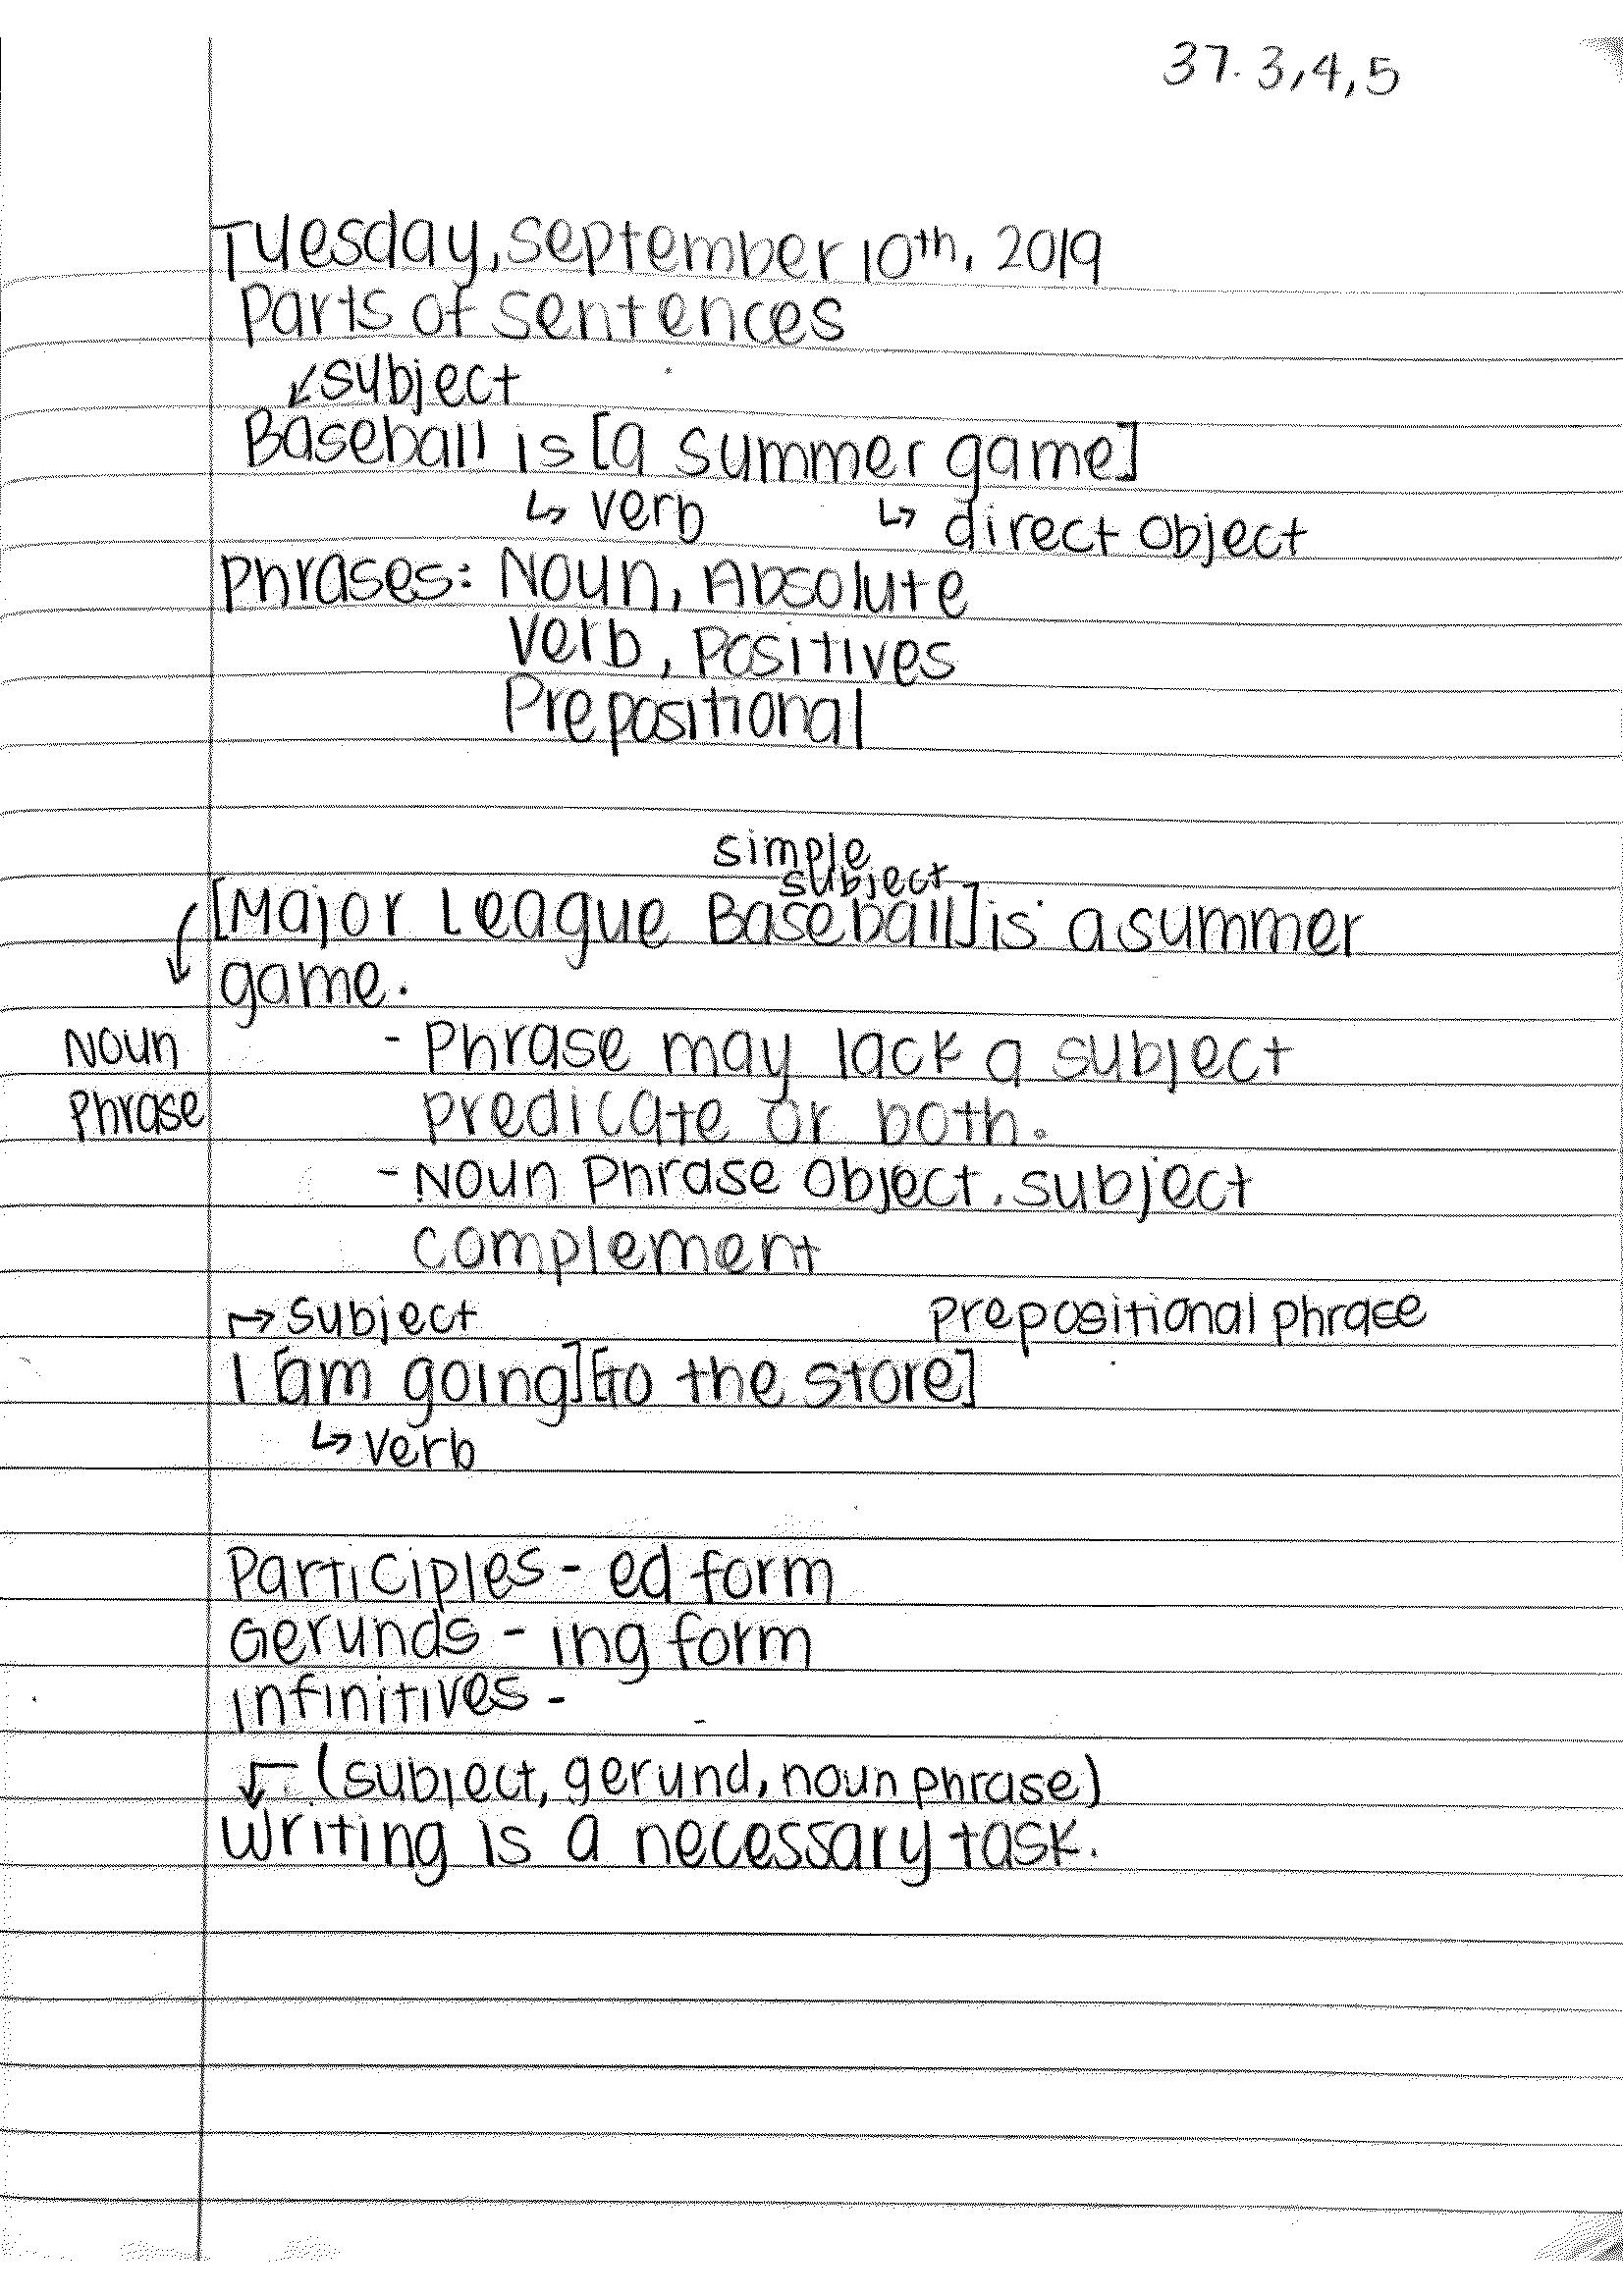 37. 3,4,5
Tuesday, September 10th, 2019
Parts of sentences
↙ subject
Baseball is [a summer game]
↳ verb ↳ direct object
Phrases: Noun, Absolute
Verb, Positives
Prepositional
simple
subject
[Major League Baseball] is a summer
game.
Noun - Phrase may lack a subject
Phrase predicate or both.
- Noun Phrase Object. subject
complement
↦ subject prepositional phrase
I [am going] [to the store]
↳ verb
Participles - ed form
Gerunds - ing form
infinitives -
(subject, gerund, noun phrase)
Writing is a necessary task.